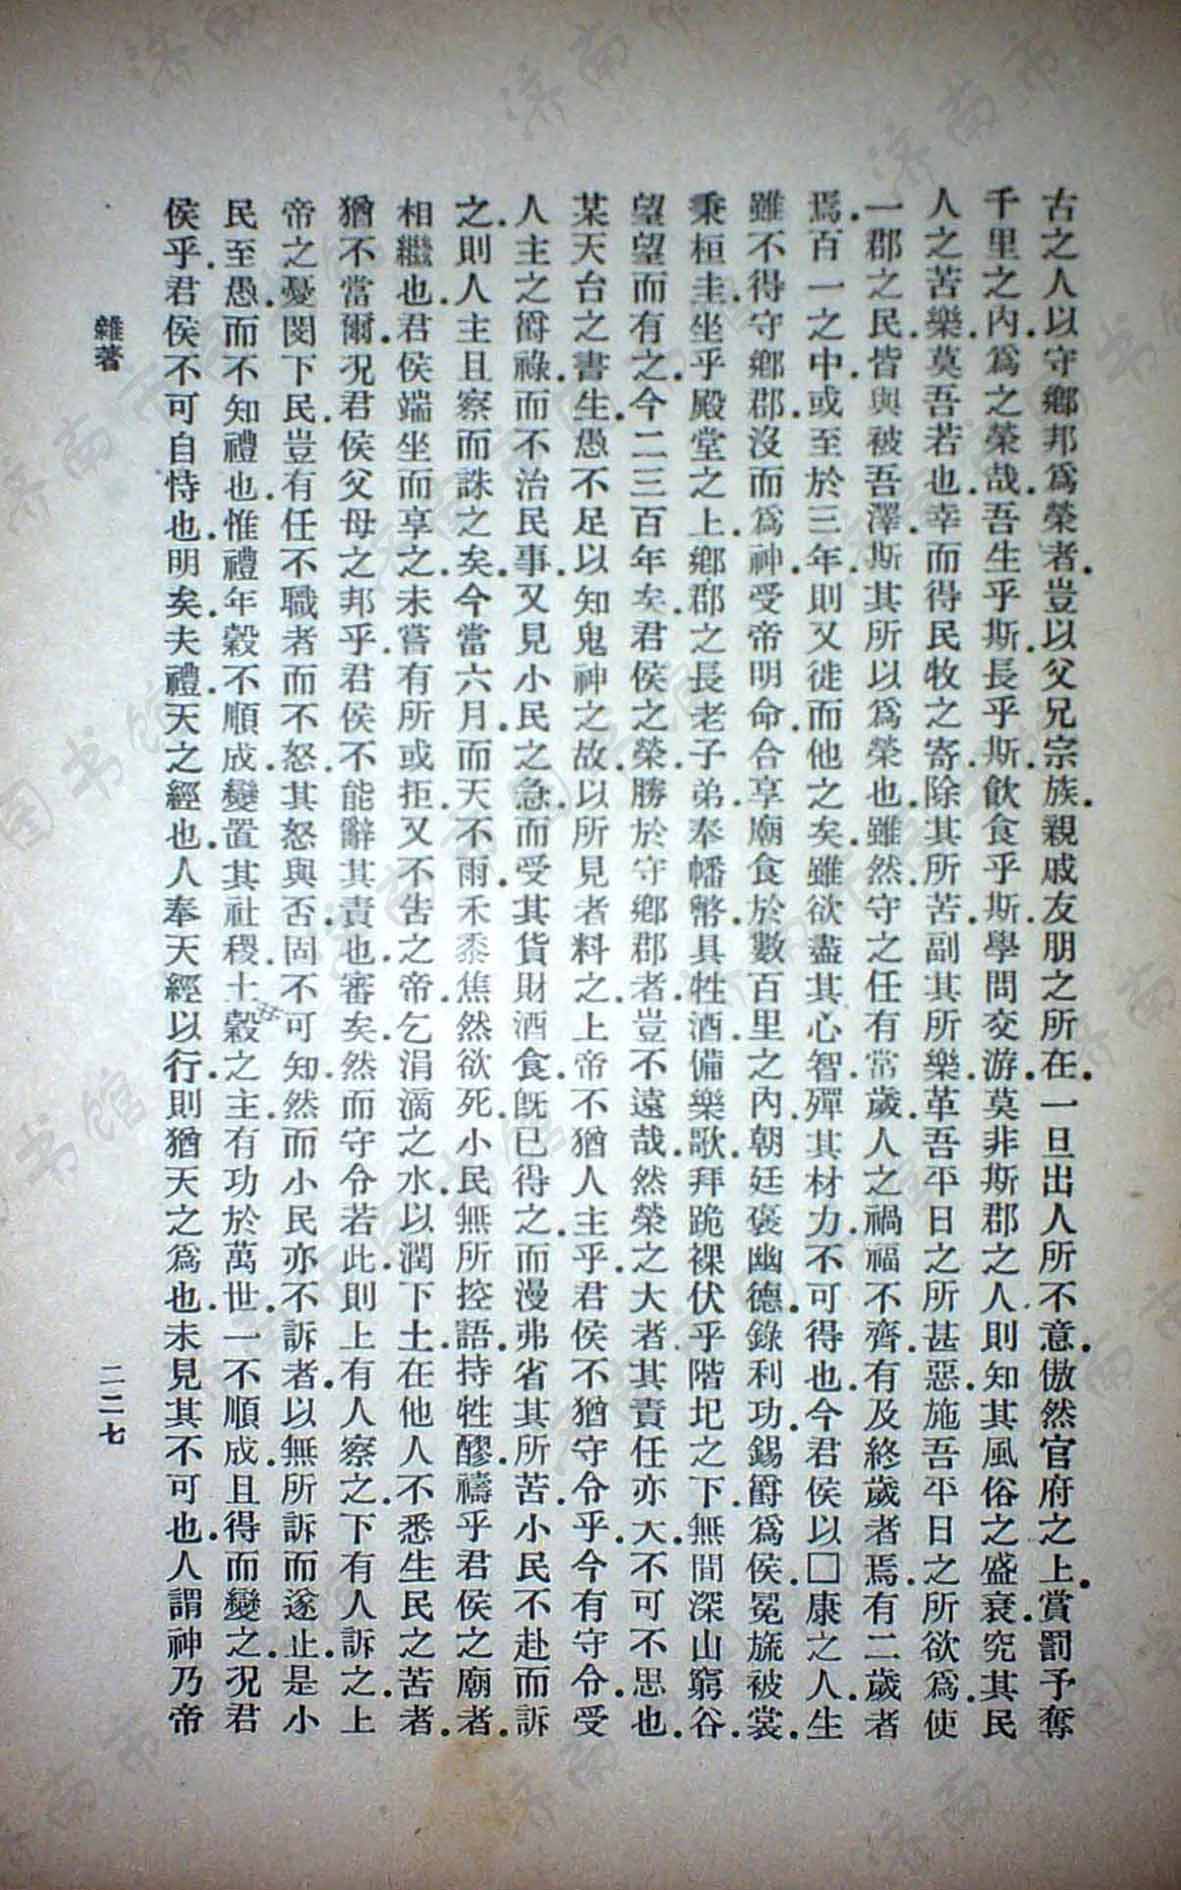 古之人以守鄉邦爲榮者豈以父兄宗族親戚友朋之所在一旦出人所不意傲然官府之上賞罰予奪
千里之內爲之榮哉吾生乎斯長乎斯飲食乎斯學問交游莫非斯郡之人則知其風俗之盛衰究其民
人之苦樂莫吾若也幸而得民牧之寄除其所苦副其所樂革吾平日之所甚惡施吾平日之所欲爲使
一郡之民皆與被吾澤斯其所以爲榮也雖然守之任有常歲人之禍福不齊有及終歲者焉有二歲者
焉百一之中或至於三年則又徙而他之矣雖欲盡其心智殫其材力不可得也今君侯以□康之人生
雖不得守鄉郡沒而爲神受帝明命合享廟食於數百里之內朝廷褒幽德錄利功錫爵爲侯冕旒被裳
秉桓圭坐乎殿堂之上鄉郡之長老子弟奉幡幣具牲酒備樂歌拜跪裸伏乎階圯之下無間深山窮谷
望望而有之今二三百年矣君侯之榮勝於守鄉郡者豈不遠哉然榮之大者其責任亦大不可不思也
某天台之書生愚不足以知鬼神之故以所見者料之上帝不猶人主乎君侯不猶守令乎今有守令受
人主之爵祿而不治民事又見小民之急而受其貨財酒食既已得之而漫弗省其所苦小民不赴而訴
之則人主且察而誅之矣今當六月而天不雨禾黍焦然欲死小民無所控語持牲醪禱乎君侯之廟者
相繼也君侯端坐而享之未嘗有所或拒又不告之帝乞涓滴之水以潤下土在他人不悉生民之苦者
猶不當爾况君侯父母之邦乎君侯不能辭其責也審矣然而守令若此則上有人察之下有人訴之上
帝之憂閔下民豈有任不職者而不怒其怒與否固不可知然而小民亦不訴者以無所訴而遂止是小
民至愚而不知禮也惟禮年穀不順成變置其社稷土穀之主有功於萬世一不順成且得而變之况君
侯乎君侯不可自恃也明矣夫禮天之經也人奉天經以行則猶天之爲也未見其不可也人謂神乃帝
雜著
二二七